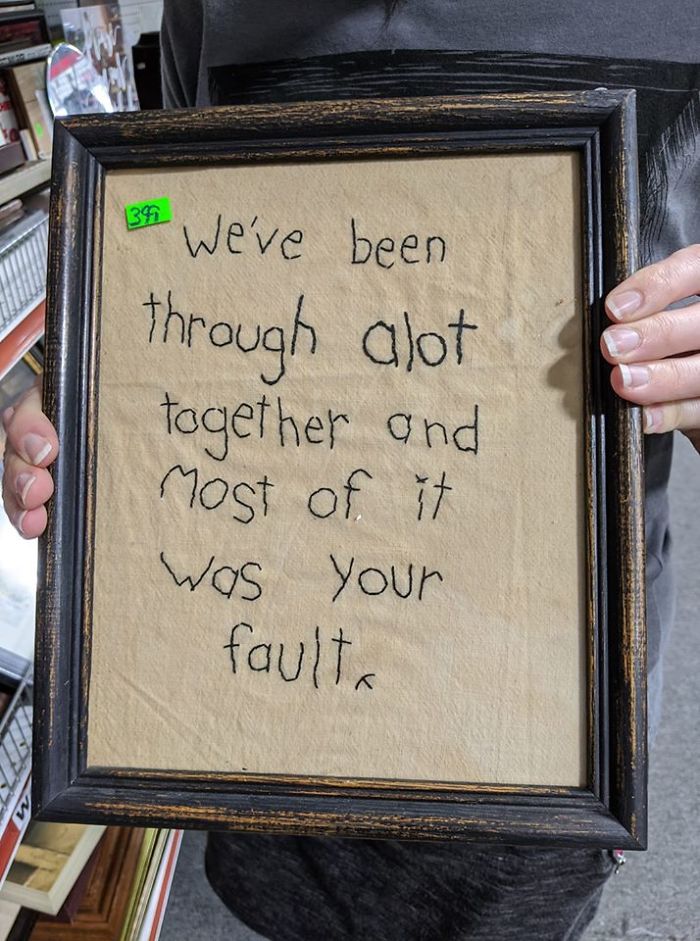 399
We've been
through alot
together and
Most of it
was your
fault.